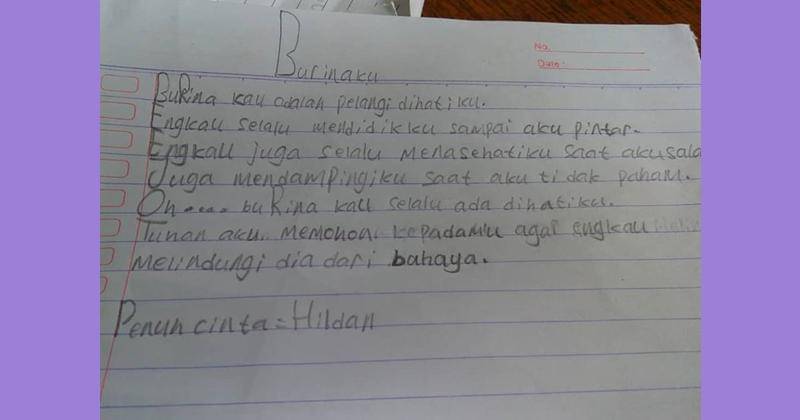 No.
Date:
Burinaku
BuRina kau adalah pelangi dihatiku.
Engkau selalu mendidikku sampai aku pintar.
Engkau juga selalu menasehatiku saat aku sala
Juga mendampingiku saat aku tidak paham.
Oh.... buRina kau selalu ada dihatiku.
Tuhan aku memohon kepadamu agar engkau
melindungi dia dari bahaya.
Penuh cinta = Hildan